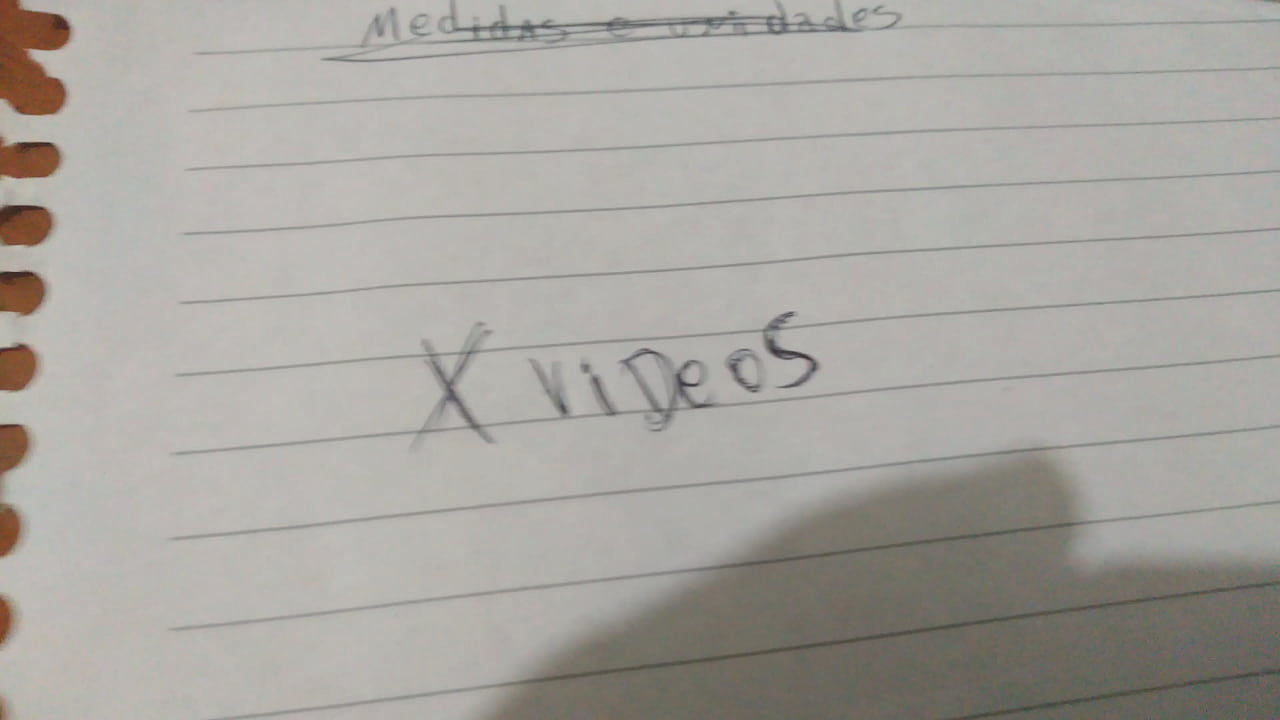 Medidas e unidades
X viDeoS